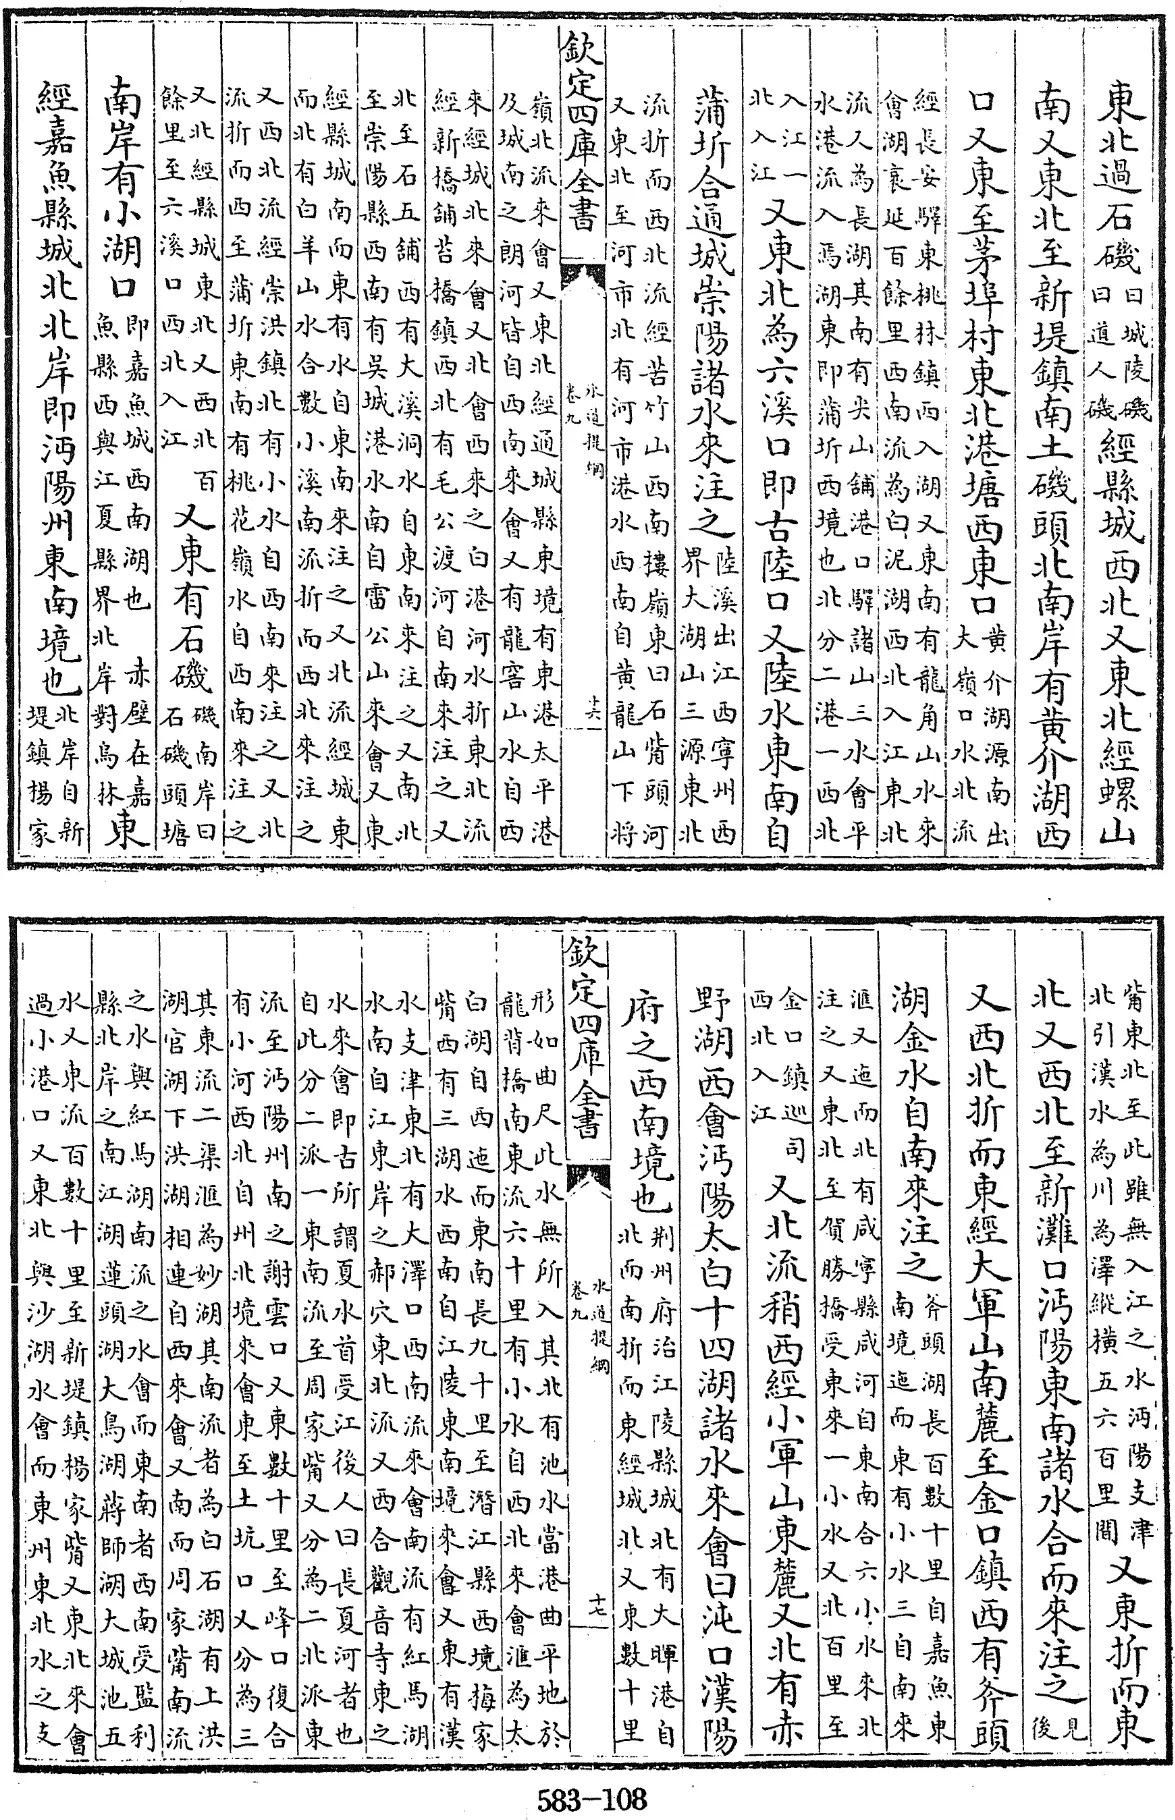 東北過石磯曰城陵磯曰道人磯經縣城西北又東北經螺山
南又東北至新堤鎮南土磯頭北南岸有黄介湖西
口又東至茅埠村東北港塘西東口黄介湖源南出大嶺口水北流
經長安驛東桃林鎮西入湖又東南有龍角山水來
會湖袤延百餘里西南流為白泥湖西北入江東北
流入為長湖其南有尖山舖港口驛諸山三水會平
水港流入焉湖東即蒲圻西境也北分二港一西北
入江一北入江又東北為六溪口即古陸口又陸水東南自
蒲圻合通城崇陽諸水來注之陸溪出江西寧州西界大湖山三源東北
流折而西北流經苦竹山西南摟嶺東曰石觜頭河
又東北至河市北有河市港水西南自黄龍山下將
欽定四庫全書 水道提綱 卷九 十六
嶺北流來會又東北經通城縣東境有東港太平港
及城南之朗河皆自西南來會又有龍窖山水自西
來經城北來會又北會西來之白港河水折東北流
經新橋舖苔橋鎮西北有毛公渡河自南來注之又
北至石五舖西有大溪洞水自東南來注之又南北
至崇陽縣西南有吳城港水南自雷公山來會又東
經縣城南而東有水自東南來注之又北流經城東
而北有白羊山水合數小溪南流折而西北來注之
又西北流經崇洪鎮北有小水自西南來注之又北
流折而西至蒲圻東南有桃花嶺水自西南來注之
又北經縣城東北又西北百餘里至六溪口西北入江又東有石磯磯南岸曰石磯頭塘
南岸有小湖口即嘉魚城西南湖也 赤壁在嘉魚縣西與江夏縣界北岸對烏林東
經嘉魚縣城北北岸即沔陽州東南境也北岸自新堤鎮楊家
觜東北至此雖無入江之水沔陽支津北引漢水為川為澤縱橫五六百里間又東折而東
北又西北至新灘口沔陽東南諸水合而來注之見後
又西北折而東經大軍山南麓至金口鎮西有斧頭
湖金水自南來注之斧頭湖長百數十里自嘉魚東南境迤而東有小水三自南來
滙又迤而北有咸寧縣咸河自東南合六小水來北
注之又東北至賀勝橋受東來一小水又北百里至
金口鎮巡司西北入江又北流稍西經小軍山東麓又北有赤
野湖西會沔陽太白十四湖諸水來會曰沌口漢陽
府之西南境也荆州府治江陵縣城北有大暉港自北而南折而東經城北又東數十里
欽定四庫全書 水道提綱 卷九 十七
形如曲尺此水無所入其北有池水當港曲平地於
龍背橋南東流六十里有小水自西北來會滙為太
白湖自西迤而東南長九十里至潛江縣西境梅家
觜西有三湖水西南自江陵東南境來會又東有漢
水支津東北有大澤口西南流來會南流有紅馬湖
水南自江東岸之郝穴東北流又西合觀音寺東之
水來會即古所謂夏水首受江後人曰長夏河者也
自此分二派一東南流至周家觜又分為二北派東
流至沔陽州南之謝雲口又東數十里至峰口復合
有小河西北自州北境來會東至土坑口又分為三
其東流二渠滙為妙湖其南流者為白石湖有上洪
湖官湖下洪湖相連自西來會又南而周家觜南流
之水與紅馬湖南流之水會而東南者西南受監利
縣北岸之南江湖蓮頭湖大鳥湖蔣師湖大城池五
水又東流百數十里至新堤鎮楊家觜又東北來會
過小港口又東北與沙湖水會而東州東北水之支
583-108